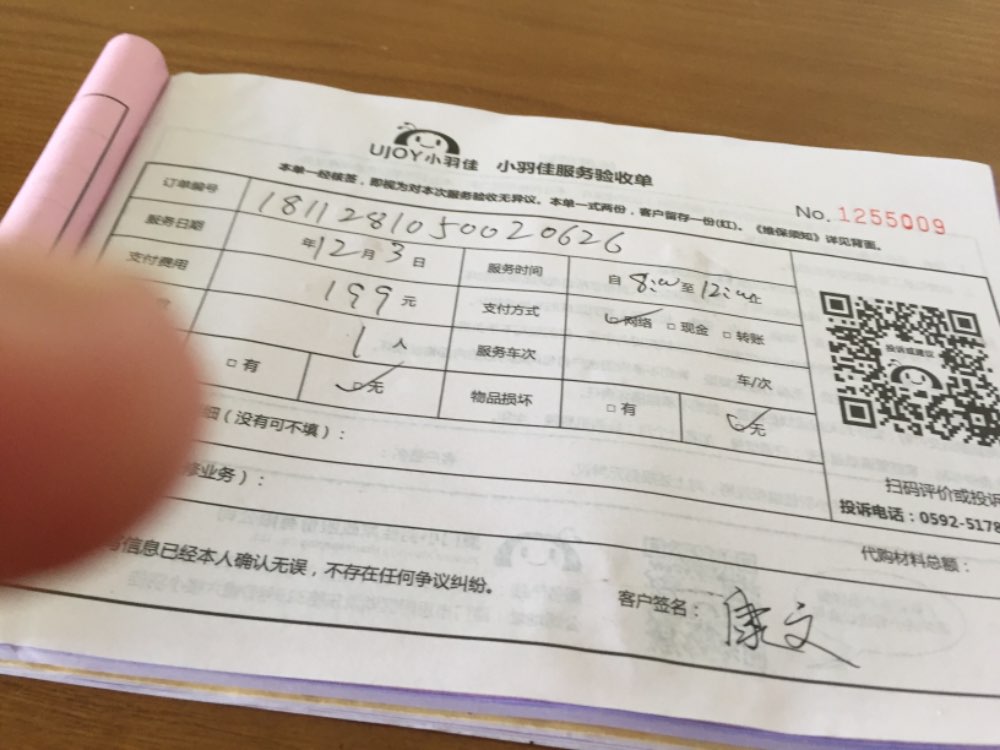 UJOY小羽佳 小羽佳服务验收单
No. 1255009
本单一经核签，即视为对本次服务验收无异议。本单一式两份，客户留存一份(红)。《维保须知》详见背面。
订单编号 181128105002 0626
服务日期 年12月3日 服务时间 自8:00至12:00止
支付费用 199元 支付方式 ☑网络 □现金 □转账
1人 服务车次 车/次
□有 ☑无 物品损坏 □有 ☑无
投诉或建议
细（没有可不填）：
修业务）：
扫码评价或投诉
投诉电话：0592-5178
代购材料总额：
信息已经本人确认无误，不存在任何争议纠纷。
客户签名：康文